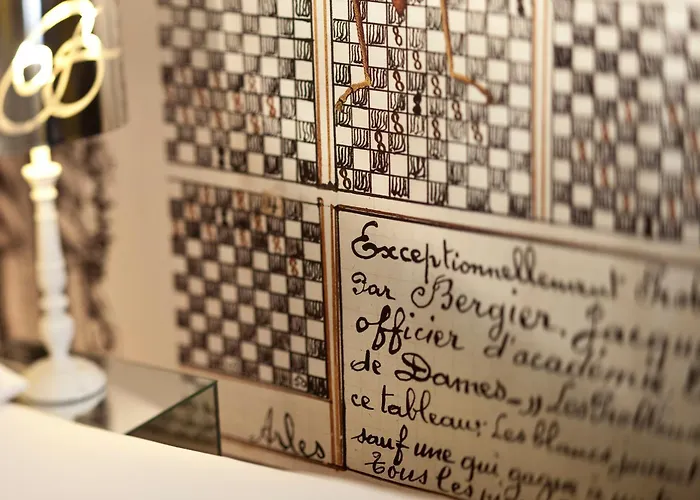 Exceptionnellement
Par Bergier, Jacques
officier d'académie
de Dames_,, Les Problèmes
ce tableau: Les blancs,
sauf une qui gagne
Tous les
Arles